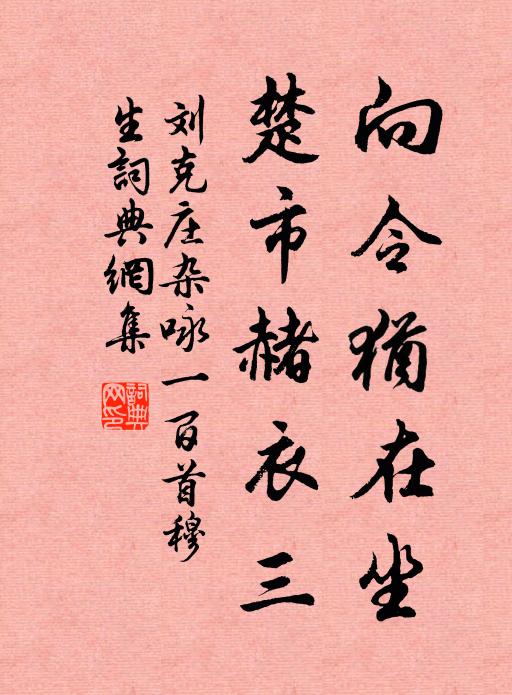 向令猶在坐
楚市赭衣三
刘克庄杂咏一百首穆
生詞典網集
詞典
网印